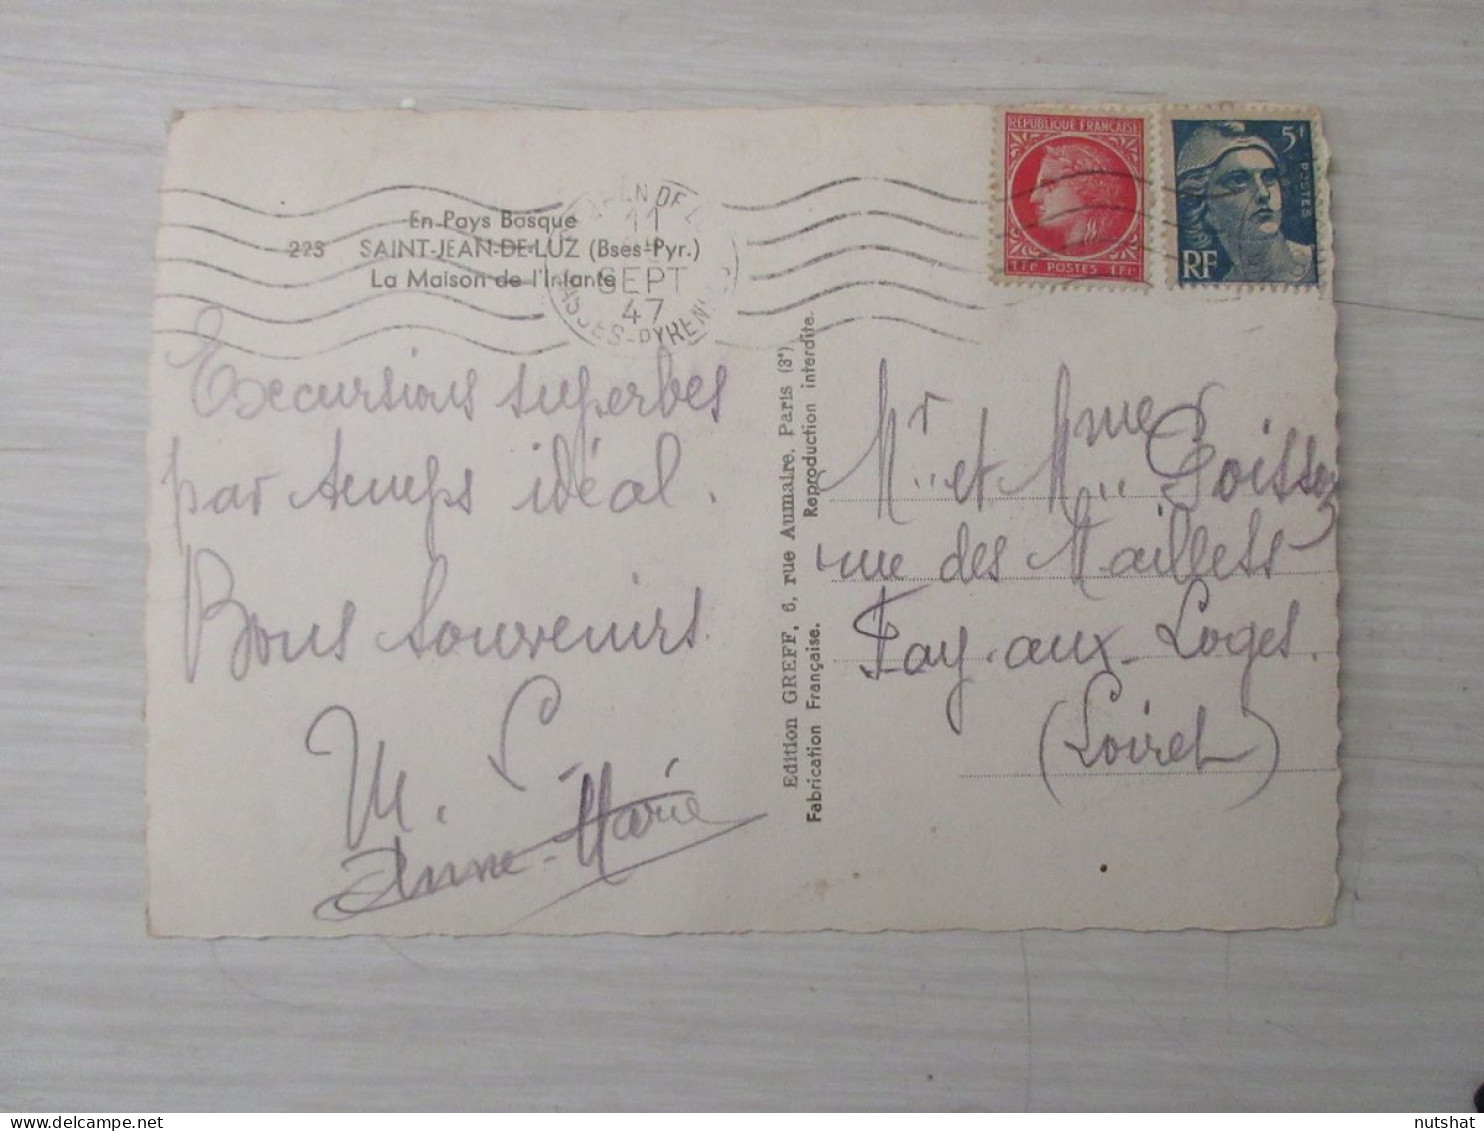 En Pays Basque
223 SAINT-JEAN-DE-LUZ (Bses-Pyr.)
La Maison de l'Infante
11
SEPT
47
BASSES-PYRENEES
RÉPUBLIQUE FRANÇAISE
1 Fr POSTES 1 Fr
5F
POSTES
RF
Excursions superbes
par temps idéal.
Bons Souvenirs.
M.
Anne-Marie
Edition GREFF, 6, rue Aumaire, Paris (3e)
Fabrication Française. Reproduction interdite.
Mr et Mme
rue des Maillets
Fay-aux-Loges.
(Loiret)
nutshat